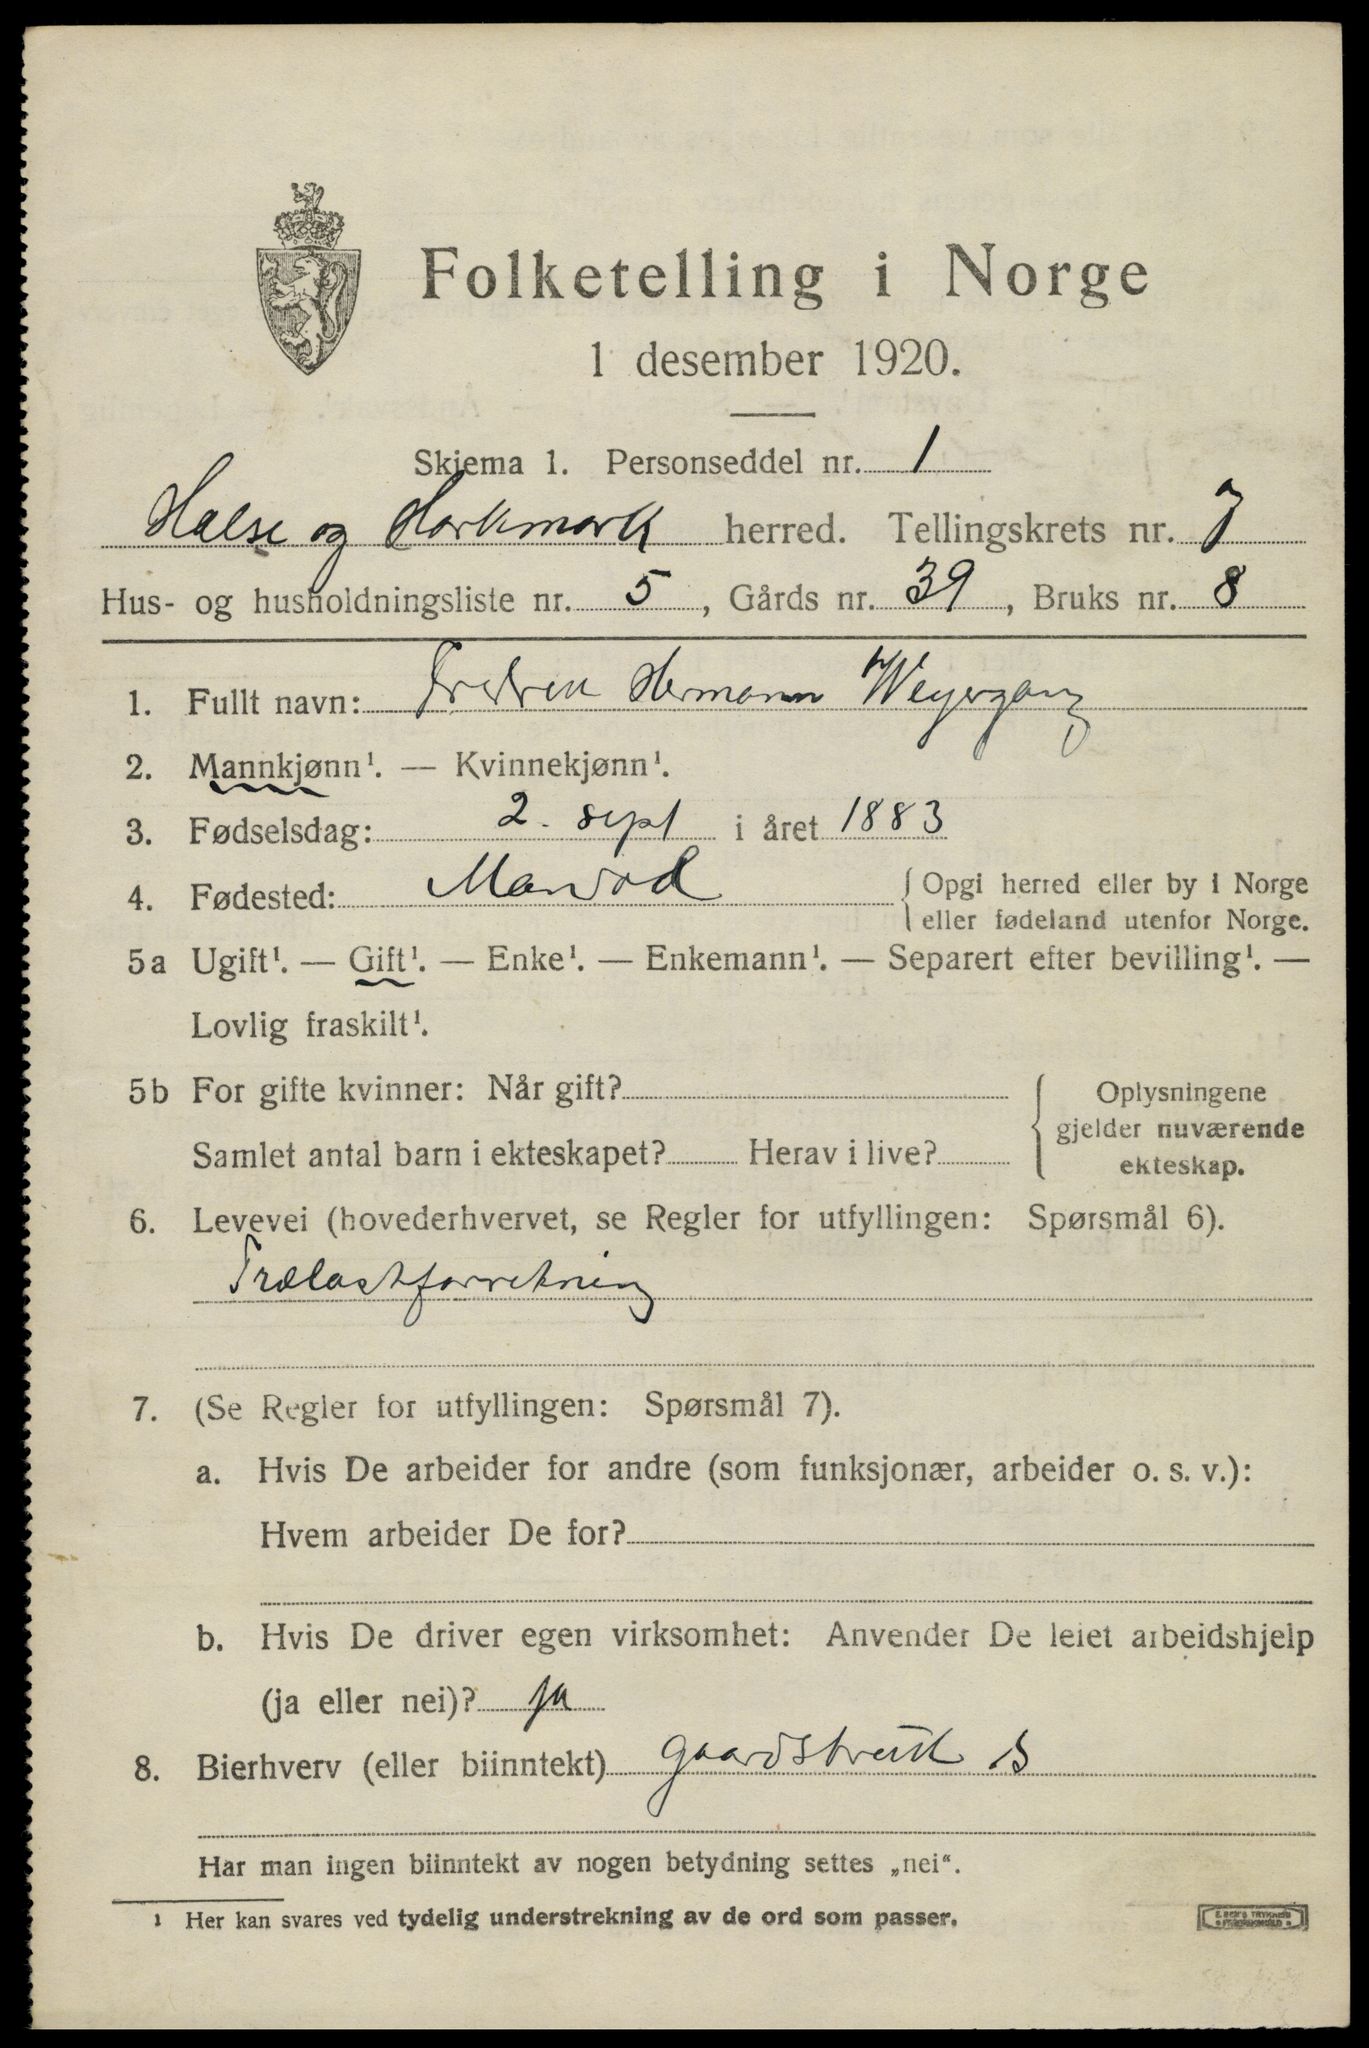 Folketelling i Norge
1 desember 1920.
Skjema 1. Personseddel nr. 1
Halse og Harkmark herred. Tellingskrets nr. 7
Hus- og husholdningsliste nr. 5, Gårds nr. 39, Bruks nr. 8
1. Fullt navn: Fredrik Hermann Weyergang
2. Mannkjønn¹. — Kvinnekjønn¹.
3. Fødselsdag: 2. sept i året 1883
4. Fødested: Mandal {Opgi herred eller by i Norge
eller fødeland utenfor Norge.
5a Ugift¹. — Gift¹. — Enke¹. — Enkemann¹. — Separert efter bevilling¹. —
Lovlig fraskilt¹.
5b For gifte kvinner: Når gift? {Oplysningene
gjelder nuværende
Samlet antal barn i ekteskapet? Herav i live?
ekteskap.
6. Levevei (hovederhvervet, se Regler for utfyllingen: Spørsmål 6).
Trælastforretning
7. (Se Regler for utfyllingen: Spørsmål 7).
a. Hvis De arbeider for andre (som funksjonær, arbeider o. s. v.):
Hvem arbeider De for?
b. Hvis De driver egen virksomhet: Anvender De leiet arbeidshjelp
(ja eller nei)? ja
8. Bierhverv (eller biinntekt) gaardsbruk S
Har man ingen biinntekt av nogen betydning settes „nei“.
¹ Her kan svares ved tydelig understrekning av de ord som passer.